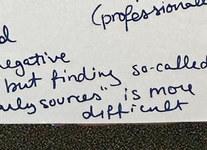 (professional
d
negative
but finding so-called
sources" is more
difficult